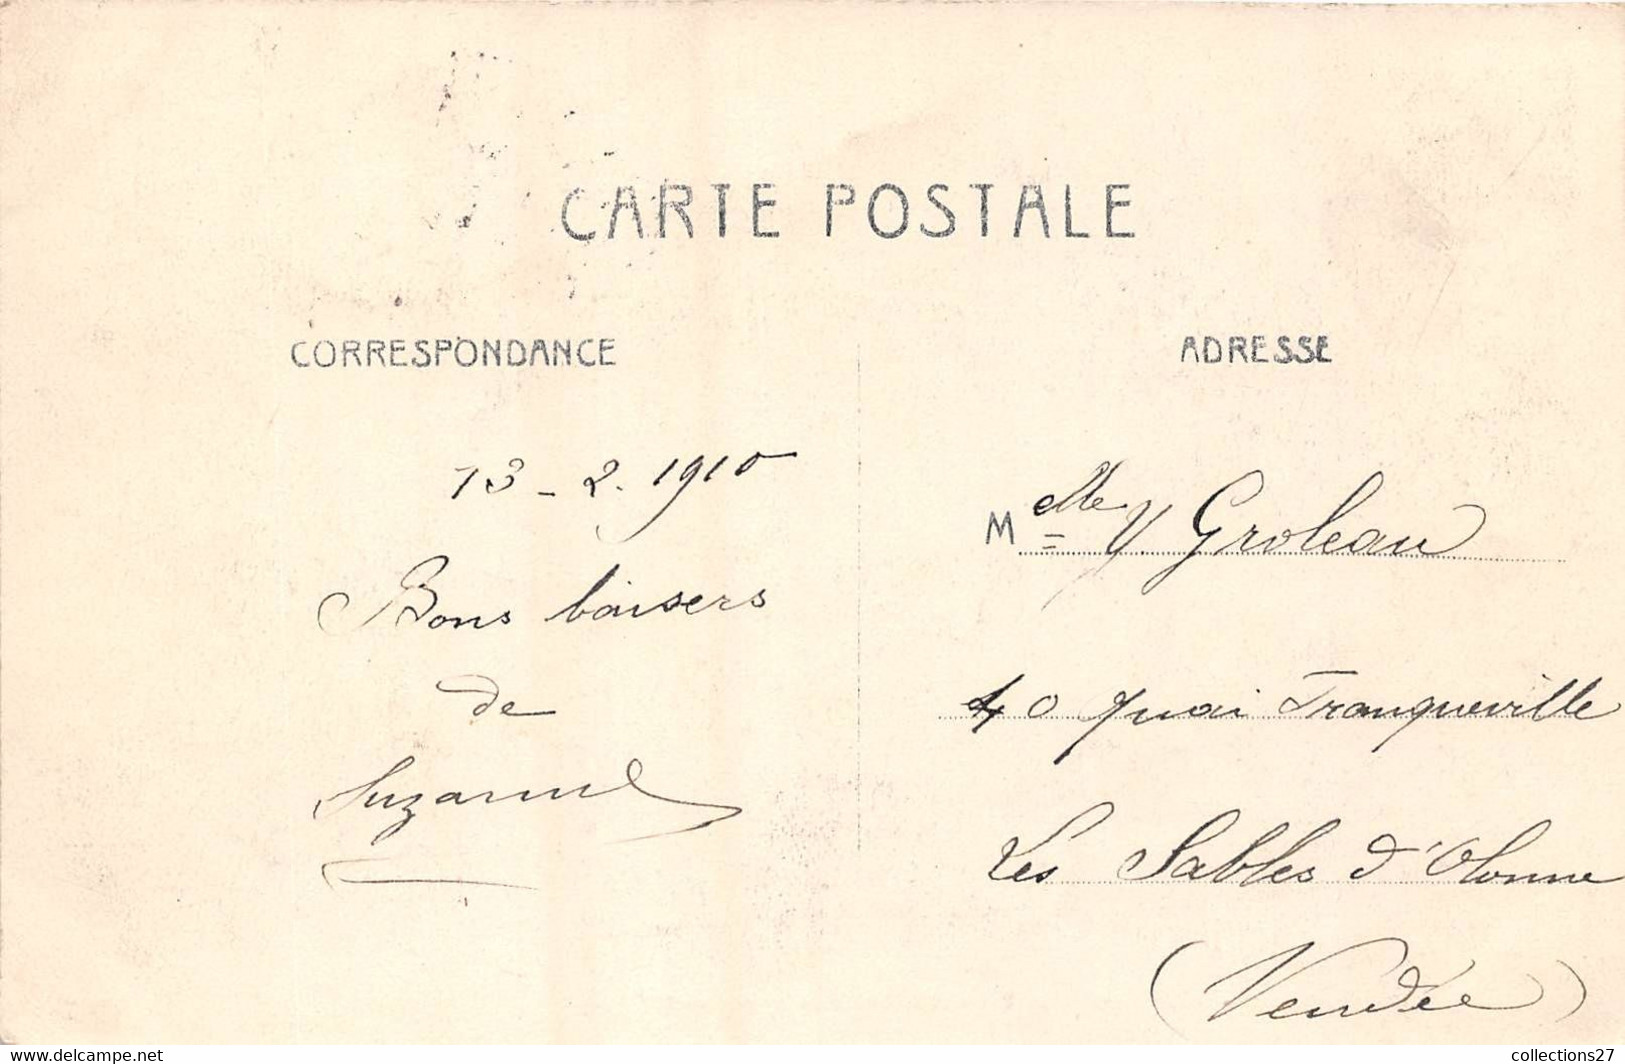 CARTE POSTALE
CORRESPONDANCE
13 - 2. 1910
Bons baisers
de
Suzanne
ADRESSE
Melle Y. Groleau
40 quai Franqueville
Les Sables d'Olonne
(Vendée)
collections27